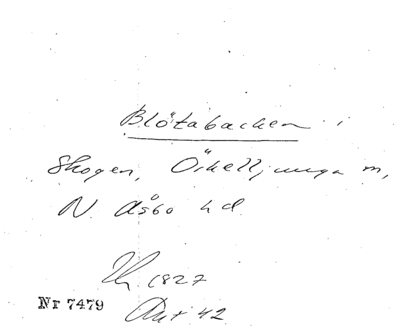 Blötabacken i
Skogen, Örkelljunga m,
N. Åsbo hd.
1827
Nr 7479
Ant 42